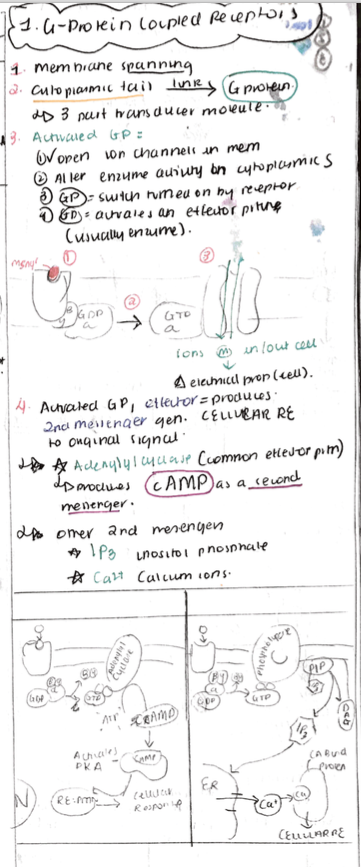 1. G-Protein Coupled Receptors
1. Membrane spanning
2. Cytoplasmic tail link → G protein
↳ 3 part transducer molecule.
3. Activated GP =
① open ion channels in mem
② Alter enzyme activity on cytoplasmic S
③ GP = switch turned on by receptor
④ GP = activates an effector
(usually enzyme).
① ③
GDP
a
② →
GTP
a
Ions in/out cell
Δ electrical prop (cell).
4. Activated GP, effector = produces
2nd messenger gen. CELLULAR RE
to original signal.
↳ ☆ Adenylyl cyclase (common effector
↳ produces cAMP as a second
messenger.
↳ other 2nd messengen
☆ IP3 inositol phosphate
☆ Ca2+ Calcium ions.
Adenylyl
cyclase
GDP
GTP
ATP
cAMP
Activates
PKA
cAMP
Cellular
Response
Phospholipase
C
PIP
βγ
a
GDP
GTP
DAG
IP3
ER
Ca+
Ca
CELLULAR RE